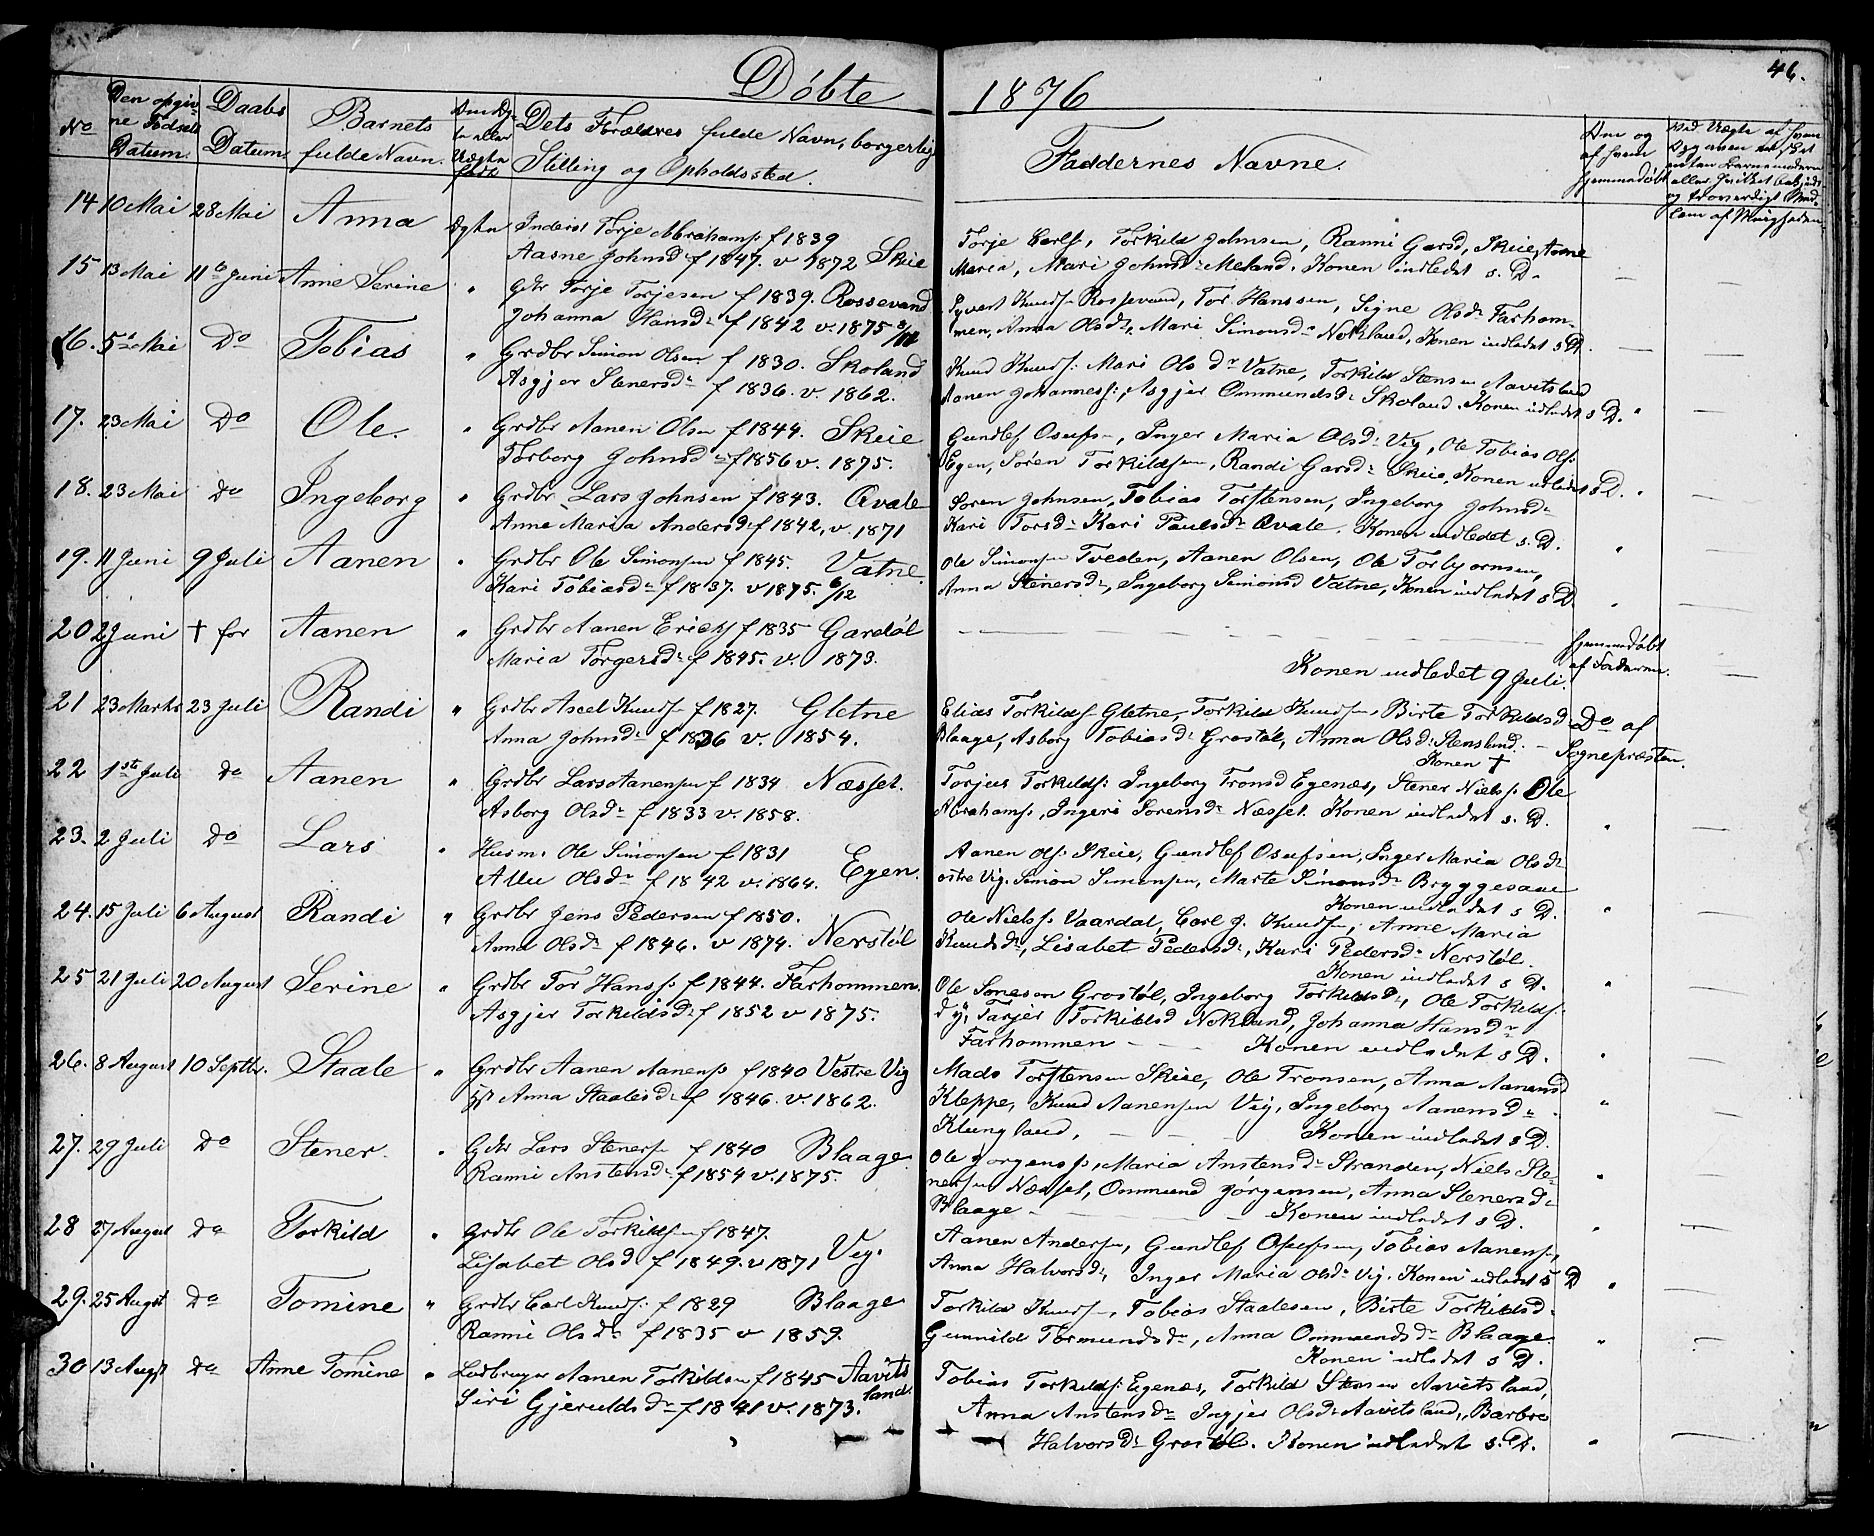 Döbte 1876
46.
No
Den opgiv-
ne Fødsels
Datum.
Daabs
Datum.
Barnets
fulde Navn.
Om Æg-
te eller
Uægte
født
Dets Forældres fulde Navn, borgerlig
Stilling og Opholdssted.
Faddernes Navne.
Om og
af hvem
hjemmedøbt
14 10 Mai 28 Mai Anna Ægte Inderst Torje Abrahams. f 1839
Aasne Johnsdr f 1847. v 1872 Skeie
Torje Carls., Torkild Johnsen, Ranni Garsd, Skeie, Anne
Maria, Mari Johnsdr Meland. Konen indledet s. D.
15 13 Mai 11te Juni Anne Serine " Gdbr Torje Torjesen f 1839. Rossevand
Johanna Hansdr f 1842 v. 1875
Syvert Knuds. Rossevand, Tor Hanssen, Signe Olsdr Farhom-
men, Anna Olsdr, Mari Simonsdr Nokland, Konen indledet s D.
16. 5te Mai Do Tobias " Grdbr Simon Olsen f 1830. Skoland
Asgjer Stenersdr f 1836. v. 1862.
Knud Knuds. Mari Olsdr Vatne, Torkild Stensen Aavitsland
Aanen Johanness., Asgjer Ommundsdr Skoland. Konen indledet s D.
17. 23 Mai Do Ole. " Grdbr Aanen Olsen f 1844. Skeie
Torborg Johnsdr f 1856 v. 1875.
Gundlef Osufsn, Inger Maria Olsdr Vig, Ole Tobias Ols.
Egen, Sören Torkildsen, Randi Garsdr Skeie. Konen indledet s D.
18. 23 Mai Do Ingeborg " Grdbr Lars Johnsen f 1843. Qvale
Anne Maria Andersdr f 1842, v. 1871
Soren Johnsen, Tobias Torstensen, Ingeborg Johnsdr
Kari Torsdr Kari Paulsdr Qvale. Konen indledet s. D.
19. 11 Juni 9 Juli Aanen " Grdbr Ole Simonsen f 1845. Vatne.
Kari Tobiasdr f 1837. v 1875. 6/12
Ole Simonsen Tveden, Aanen Olsen, Ole Torbjornsen,
Anna Stenersdr, Ingeborg Simonsd Vatne, Konen indledet s D.
20 2 Juni † for Aanen " Grdbr Aanen Ericks f 1835 Gardöl
Maria Torgersdr f 1845. v. 1873.
Konen indledet 9 Juli.
hjemmedøbt
af Faderen.
21 23 Marts 23 Juli Randi " Grdbr Axel Knuds. f 1827. Gletne
Anna Johnsdr f 1836 v. 1854.
Elias Torkilds. Gletne, Torkild Knuds., Birte Torkildsdr
Blaage, Asborg Tobiasdr Grostøl, Anna Olsdr Stensland.
Konen †
Do af
Sognepræsten.
22 1st Juli do Aanen " Grdbr Lars Aanensen f 1834 Næsset.
Asborg Olsdr f 1833 v. 1858.
Torjus Torkilds. Ingeborg Tronsd Egenæs, Stener Niels. Ole
Abrahams., Ingeri Sorensdr Næsset. Konen indledet s. D.
23. 2 Juli do Lars " Husm. Ole Simonsen f 1831 Egen.
Allu Olsdr f 1842 v. 1864.
Aanen Ols. Skeie, Gundlef Osufsen, Inger Maria Olsdr
ostre Vig. Simon Simonsen, Marte Simonsdr Bryggesaae
Konen indledet s D.
24. 15 Juli 6 August Randi " Grdbr Jens Pedersen f 1850.
Anna Olsdr f 1846. v 1874. Nerstöl
Ole Niels. Vaardal, Carl J. Knuds., Anne Maria
Knudsdr, Lisabet Pedersdr, Kari Pedersdr Nerstöl.
Konen indledet s D.
25 21 Juli 20 August Serine " Grdbr Tor Hans. f 1844. Farhommen.
Asgjer Torkildsdr f 1852 v 1875.
Ole Sonesen Grostöl, Ingeborg Torkildsdr, Ole Torkilds.
Tarjer Torkildsd Nokland, Johanna Hansdr
Farhommen — Konen indledet s D.
26. 8 August 10 Septbr. Staale " Grdbr Aanen Aanens. f 1840 Vestre Vig
Anna Staalesdr f 1846. v. 1862.
Mads Torstensen Skeie, Ole Tronsen, Anna Aanensd
Kleppe, Knud Aanensen Vig, Ingeborg Aanensdr
Klungland. — Konen indledet s D.
27. 29 Juli Do Stener. " Gdbr Lars Steners. f 1840 Blaage.
Ranni Anstensdr f 1854 v. 1875.
Ole Jorgens., Maria Anstensdr Stranden, Niels Ste-
nersen Næsset, Ommund Jörgensen, Anna Stenersdr
Blaage — Konen indledet s D.
28 27 August Do Torkild " Grdbr Ole Torkildsen f 1847.
Lisabet Olsd f 1849. v 1871 Vig.
Aanen Andersen, Gundlef Osufsen, Tobias Aanens.,
Anna Halvorsdr, Inger Maria Olsdr Vig. Konen indledet s D
29. 25 Augst Do Tomine " Grdbr Carl Knuds. f 1829 Blaage
Ranni Olsdr f 1835 v 1859.
Torkild Knuds., Tobias Staalesen, Birte Torkildsdr
Gunnild Tormundsdr, Anna Ommundsdr Blaage.
Konen indledet s D.
30 13 Augst Do Anne Tomine " Ladbruger Aanen Torkildsen f 1845 Aavits
land.
Siri Gjeruldsdr f 1841 v. 1873.
Tobias Torkilds. Egenæs, Torkild Stensen Aavitsland,
Anna Anstensdr Ingjer Olsdr Aavitsland, Barbro
Halvorsdr Grostöl. Konen indledet s. D.